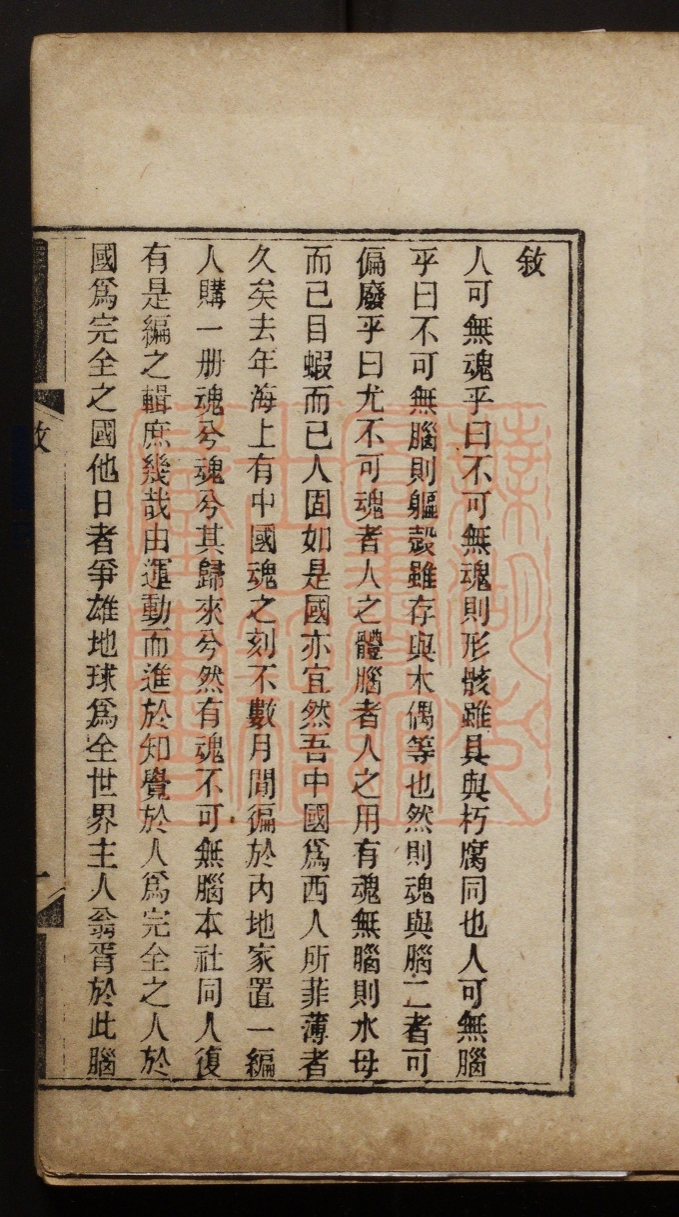 敘
人可無魂乎曰不可無魂則形骸雖具與朽腐同也人可無腦
乎曰不可無腦則軀殼雖存與木偶等也然則魂與腦二者可
偏廢乎曰尤不可魂者人之體腦者人之用有魂無腦則水母
而已目蝦而已人固如是國亦宜然吾中國爲西人所菲薄者
久矣去年海上有中國魂之刻不數月間徧於內地家置一編
人購一册魂兮魂兮其歸來兮然有魂不可無腦本社同人復
有是編之輯庶幾哉由運動而進於知覺於人爲完全之人於
國爲完全之國他日者爭雄地球爲全世界主人翁胥於此腦
敘
一